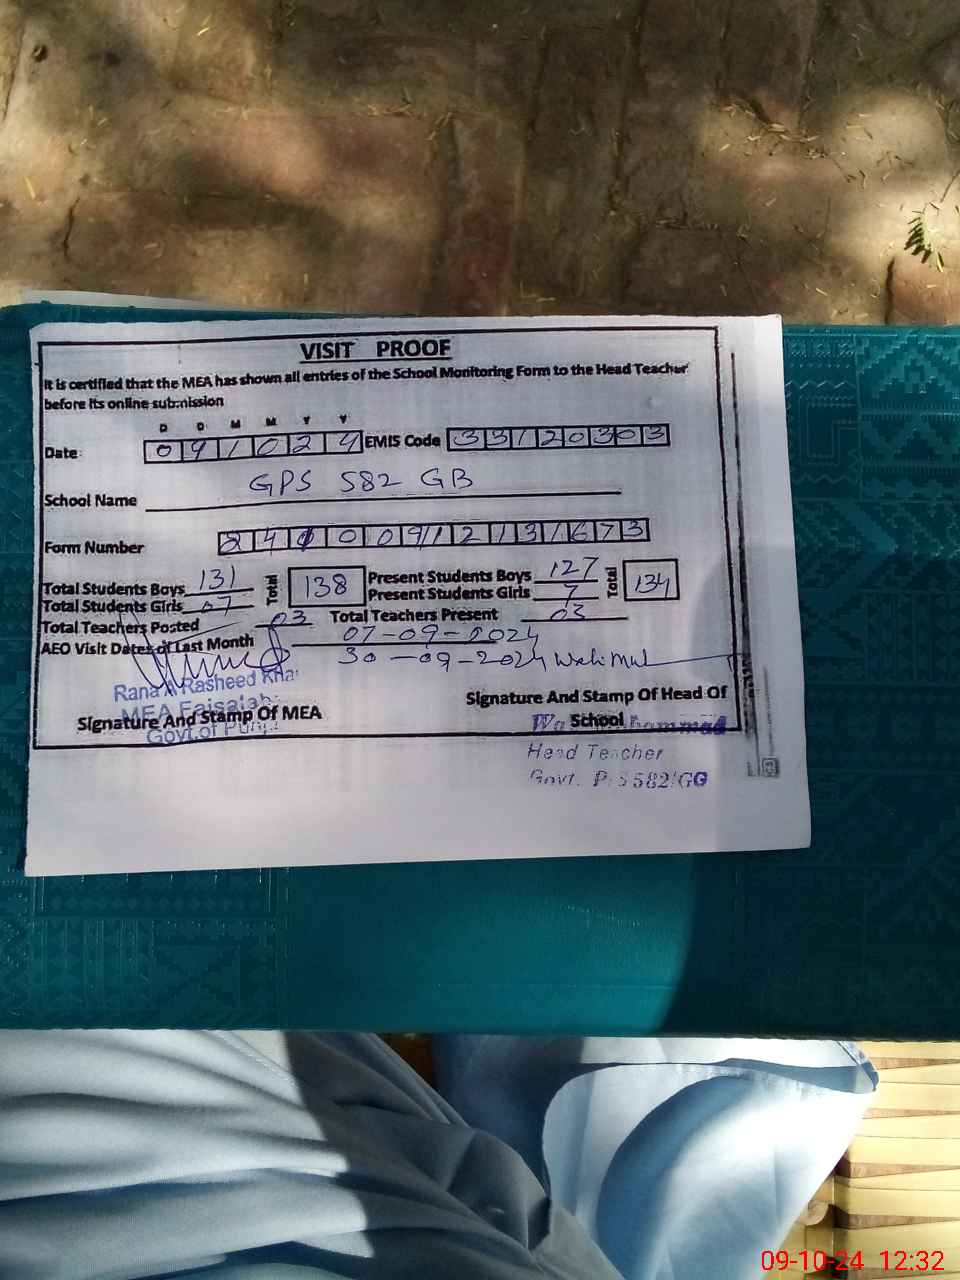 VISIT PROOF
It is certified that the MEA has shown all entries of the School Monitoring Form to the Head Teacher
before its online submission
D D M M Y Y
Date: 091024 EMIS Code 33120303
School Name GPS 582 GB
Form Number
Total Students Boys 131 Total 138 Present Students Boys 127 Total 134
Total Students Girls 07 Present Students Girls 7
Total Teachers Posted 03 Total Teachers Present 03
AEO Visit Dates of Last Month 07-09-2024
30-09-2024
Rana A Rasheed
MEA Faisalab
Signature And Stamp Of MEA
Govt. of
Signature And Stamp Of Head Of
School
Head Teacher
Govt. P/S 582/GG
09-10-24 12:32